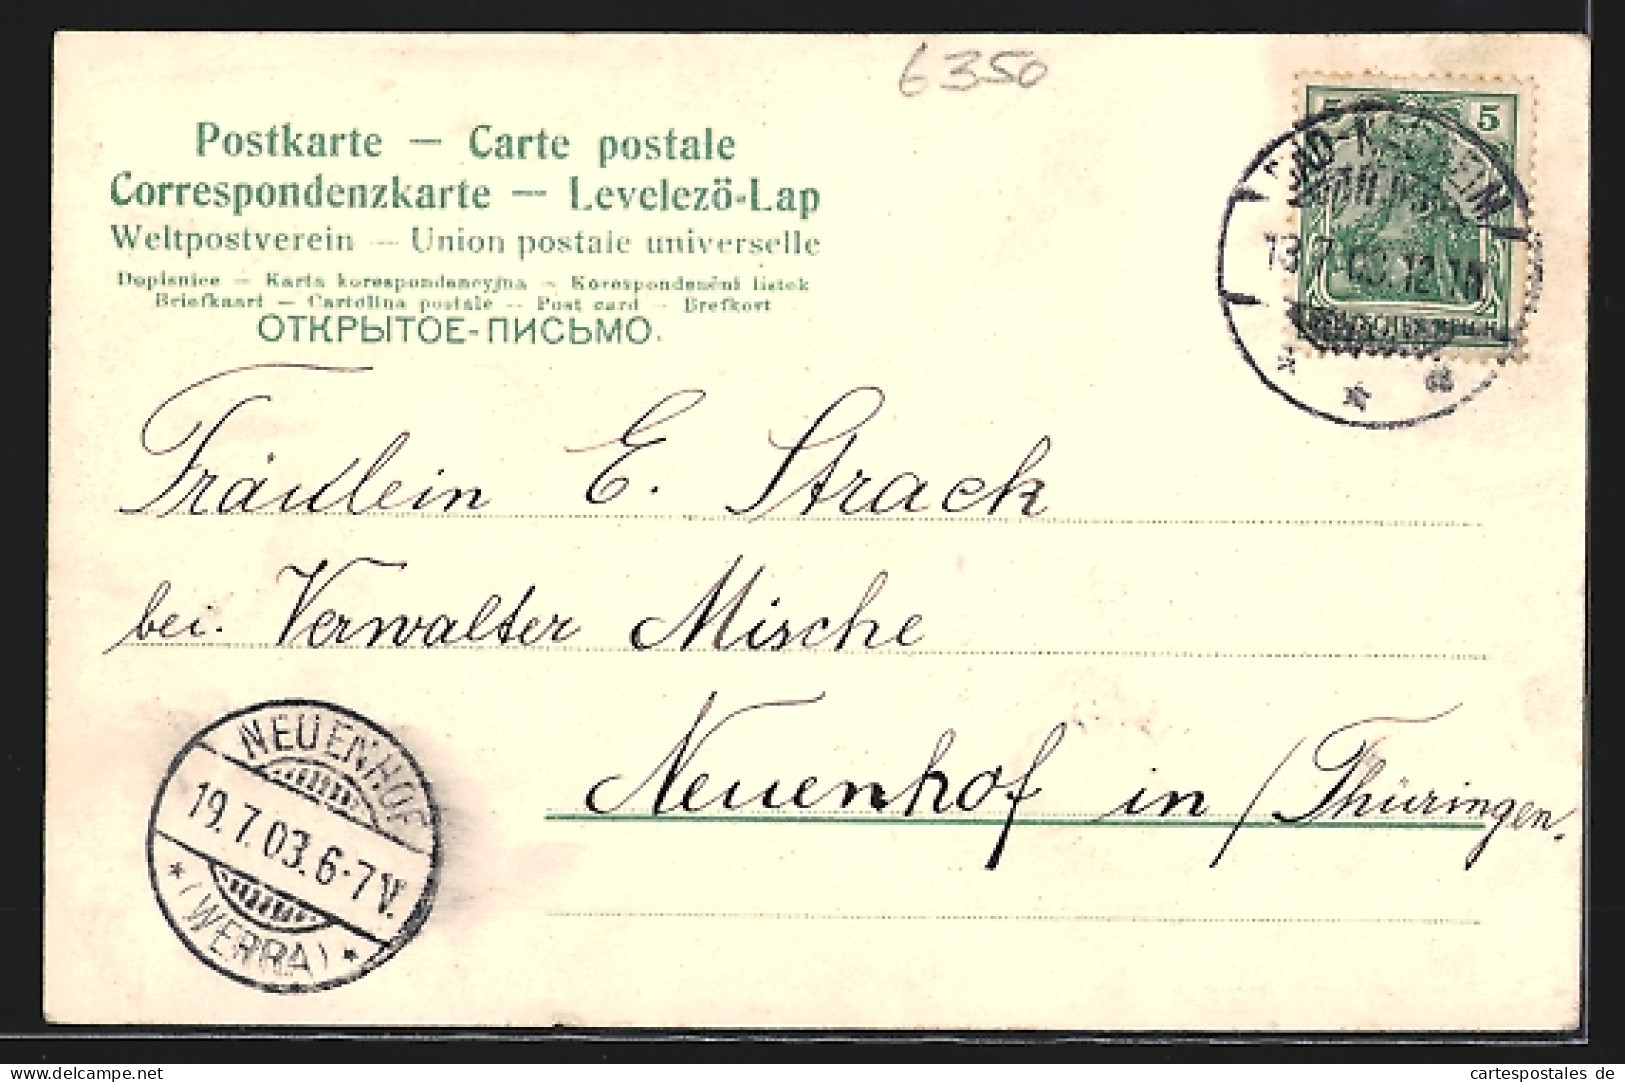 6350
Postkarte — Carte postale
Correspondenzkarte — Levelező-Lap
Weltpostverein — Union postale universelle
Dopisnice — Karta korespondencyjna — Korespondenční listek
Briefkaart — Cartolina postale — Post card — Brefkort
ОТКРЫТОЕ-ПИСЬМО.
5 5
BAD-NAUHEIM
12-1N
Fräulein E. Strack
bei Verwalter Mische
Neuenhof in / Thüringen.
NEUENHOF
19.7.03.6-7V.
* (WERRA) *
delcampe.net
cartespostales de